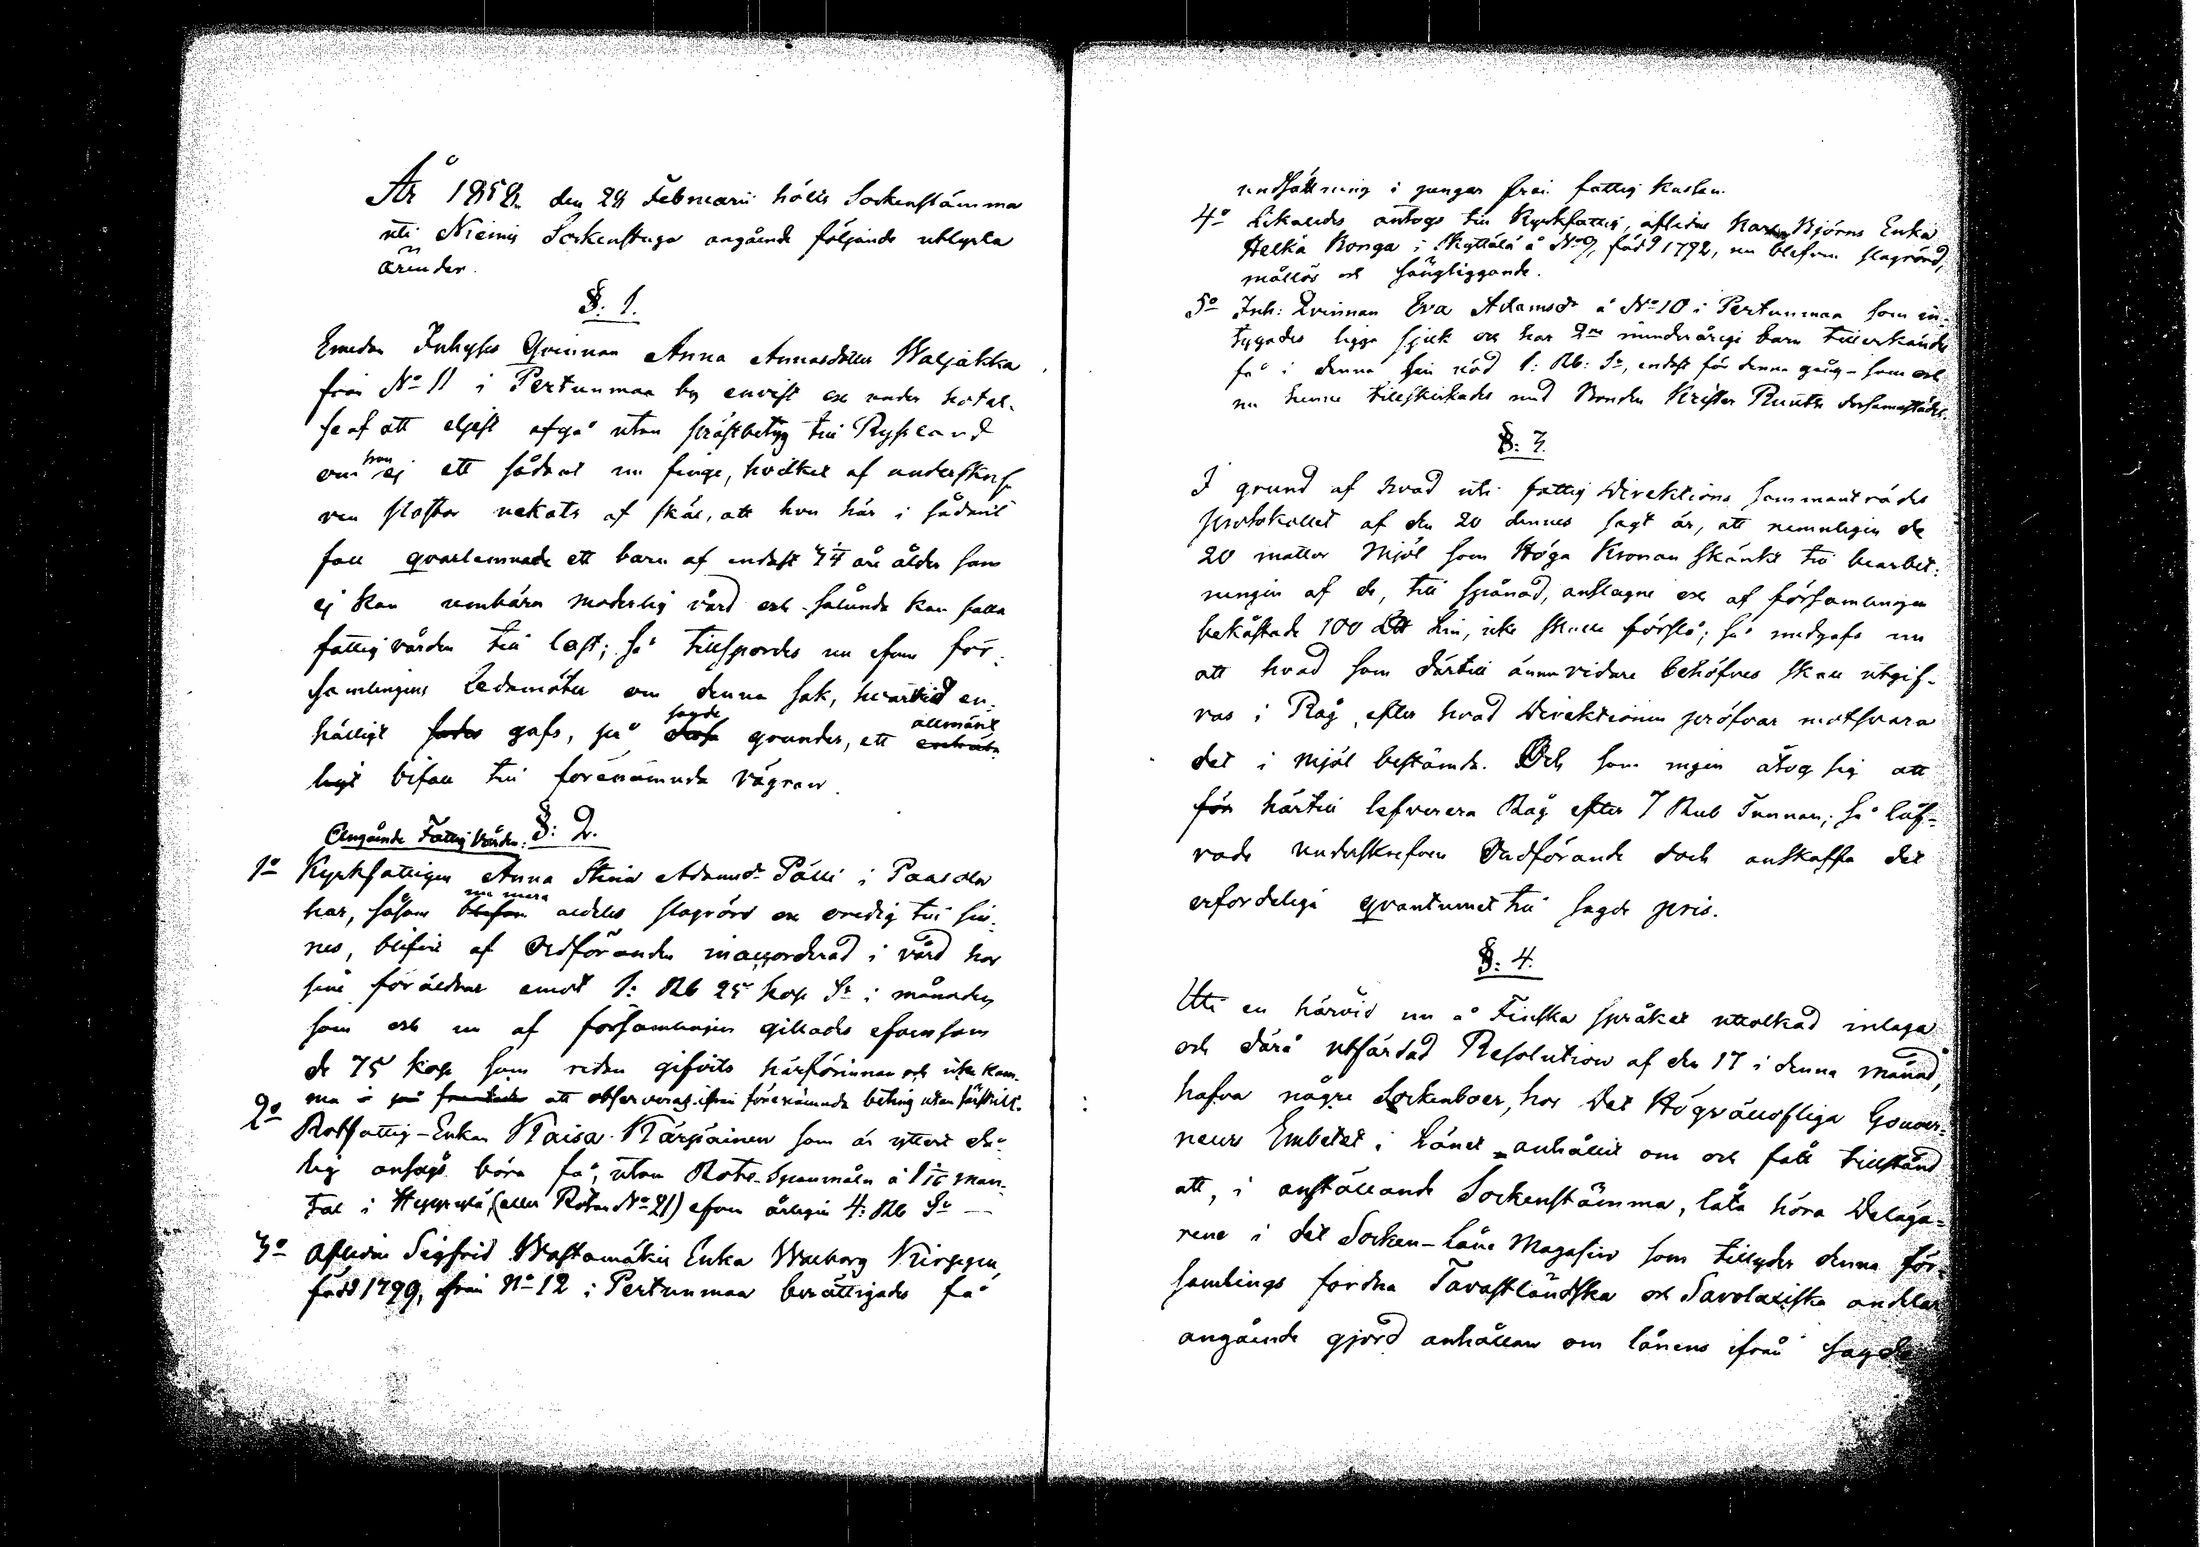 År 1858 den 28 Februarii hölls Sockenstämma
uti Niemis Sockenstuga angående följande utlysta
ärender.
§: 1.
Emedan Inhyses Qvinnan Anna Annasdotter Waljakka
från No 11 i Pertunmaa by envist och under hotel-
se af att eljest afgå utan prästbetyg till Ryssland
om hon ej ett sådant nu finge, hvilket af underskrif-
ven Pastor nekats af skäl, att hon här i sådant
fall qvarlemnade ett barn af endast års ålder som
ej kan umbära moderlig vård och sålunda kan falla
fattigvården till last; så tillspordes nu äfven för-
samlingens Ledamöter om denna sak, hvarvid en-
hälligt gafs, på sagde grunder, ett allmänt
bifall till förenämnda vägran.
Angående Fattig Vården: §: 2.
1o Kyrkfattigen Anna Stina Adamsdr Pälli i Paasola
har, såsom nu mera alldeles slagrörd och oredig till sin-
nes, blifvit af Ordföranden inaccorderad i vård hos
sine föräldrar emot 1: Rb 25 kop Sr i månaden
som och nu af församlingen gillades äfvensom
de 75 kop som redan gifvits härförinnan och icke kom-
ma att observeras ifrån förenämnda beting utan särskilt.
2o Rotfattig-Enkan Kaisa Kärpäinen som är ytterst då-
lig ansågs böra få, utom Rote-Spanmåln à man-
tal i Heppylä, (eller Rotan No 21) äfven årligen 4: Rb Sr —
3o Aflidne Sigfrid Wastamäkis Enka Walborg Kirppu,
född 1799, från No 12 i Pertunmaa berättigades få
undsättning i pengar från fattig Kassan.
4o Likaledes antogs till Kyrkfattig, aflidne Karl Björns Enka
Helka Ronga i Kyttälä å No 9, född 1792, nu blefven slagrörd,
mållös och sängliggande.
5o Inh: Qvinnan Eva Adamsdr å No 10 i Pertunmaa som in-
tygades ligga sjuk och har 2ne minderåriga barn tillerkändes
få i denna sin nöd 1: Rb: Sr, endast för denna gång – som och
nu henne tillskickades med Bonden Krister Ruuth dersammastädes.
§: 3.
I grund af hvad uti fattig Direktions sammanträdes
protokollet af den 20 dennes sagt är, att nemnligen de
20 mattor Mjöl som Höga Kronan skänkt till bearbet-
ningen af de, till spånad, anslagne och af församlingen
bekostade 100 Lin, icke skulle förslå; så medgafs nu
att hvad som därtill ännu vidare behöfves skall utgif-
vas i Råg, efter hvad Direktionen pröfvar motsvara
det i Mjöl bestämda. Och som ingen åtog sig att
för härtill lefverera Råg efter 7 Rub Tunnan; så låf-
vade underskrefven Ordförande och anskaffa det
erforderliga qvantumet till sagde pris.
§: 4.
Uti en härvid nu å Finska språket uttolkad inlaga
och därå utfärdad Resolution af den 17 i denna månad,
hafva någre Sockenboer, hos Det Högvällofliga Gouver-
neurs Embetet i Länet anhållit om och fått tillstånd
att, i anställande Sockenstämma, låta höra Delega-
rene i det Socken-Låne Magasin som tillyder denna för-
samlings fordna Tavastländska och Savolaxiska andelar
angående gjord anhållan om lånens ifrån sagde